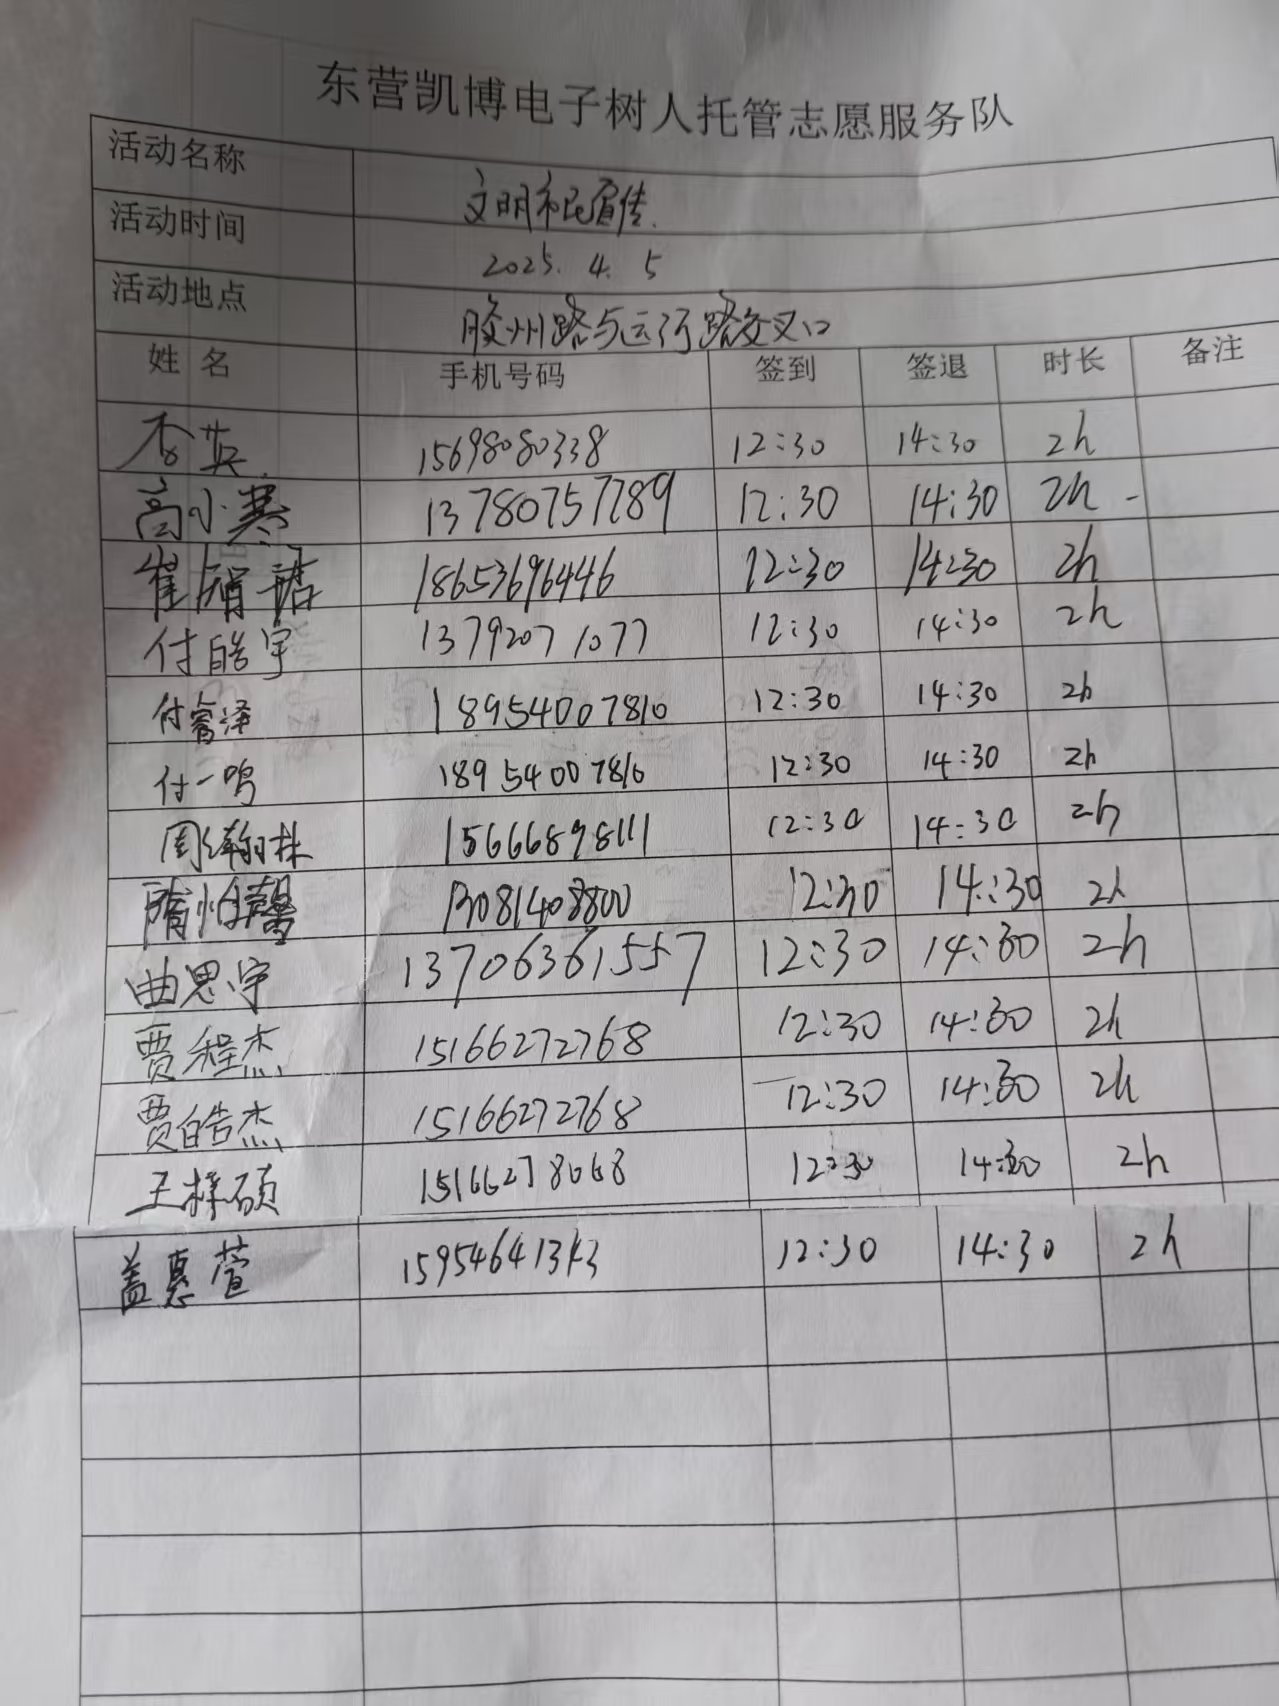 东营凯博电子树人托管志愿服务队
活动名称 文明市民宣传.
活动时间 2025. 4. 5
活动地点 胶州路与运河路交叉口
姓 名 手机号码 签到 签退 时长 备注
英 15698080338 12:30 14:30 2h
高小寒 13780757789 12:30 14:30 2h -
崔 语 18653696446 12:30 14:30 2h
付皓宇 13792071077 12:30 14:30 2h
付睿泽 18954007810 12:30 14:30 2h
付一鸣 18954007810 12:30 14:30 2h
周 翰林 15666898111 12:30 14:30 2h
隋怡馨 13081408800 12:30 14:30 2h
曲思宇 13706361557 12:30 14:30 2h
贾程杰 15166272768 12:30 14:30 2h
贾皓杰 15166272768 12:30 14:30 2h
王梓硕 15166278068 12:30 14:30 2h
盖惠萱 12:30 14:30 2h